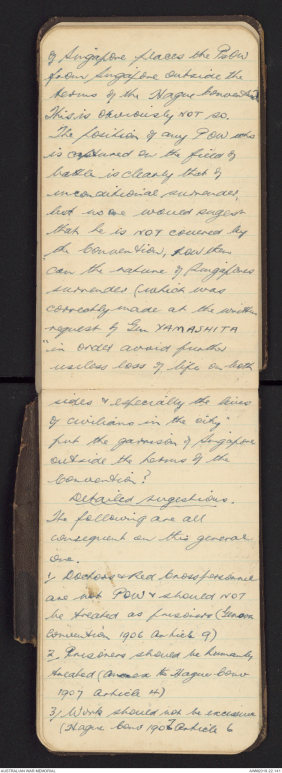 of Singapore places the POW
from Singapore outside the
terms of the Hague Convention
This is obviously NOT so.
The position of any POW who
is captured on the field of
battle is clearly that of
unconditional surrender,
but no one would sugest
that he is NOT covered by
the Convention, how then
can the nature of Singapores
surrender (which was
correctly made at the written
request of Gen YAMASHITA
"in order avoid further
useless loss of life on both
sides & especially the lives
of civilians in the city"
put the garrison of Singapore
outside the terms of the
Convention?
Detailed sugestions.
The following are all
consequent on this general
one.
1, Doctors & Red Cross personnel
are not POW & should NOT
be treated as prisoners (Geneva
Convention 1906 Article 9)
2, Prisoners should be humanely
treated (annex to Hague Conv
1907 Article 4)
3, Work should not be excessive
(Hague Conv 1907 Article 6
AUSTRALIAN WAR MEMORIAL
AWM2018.22.141